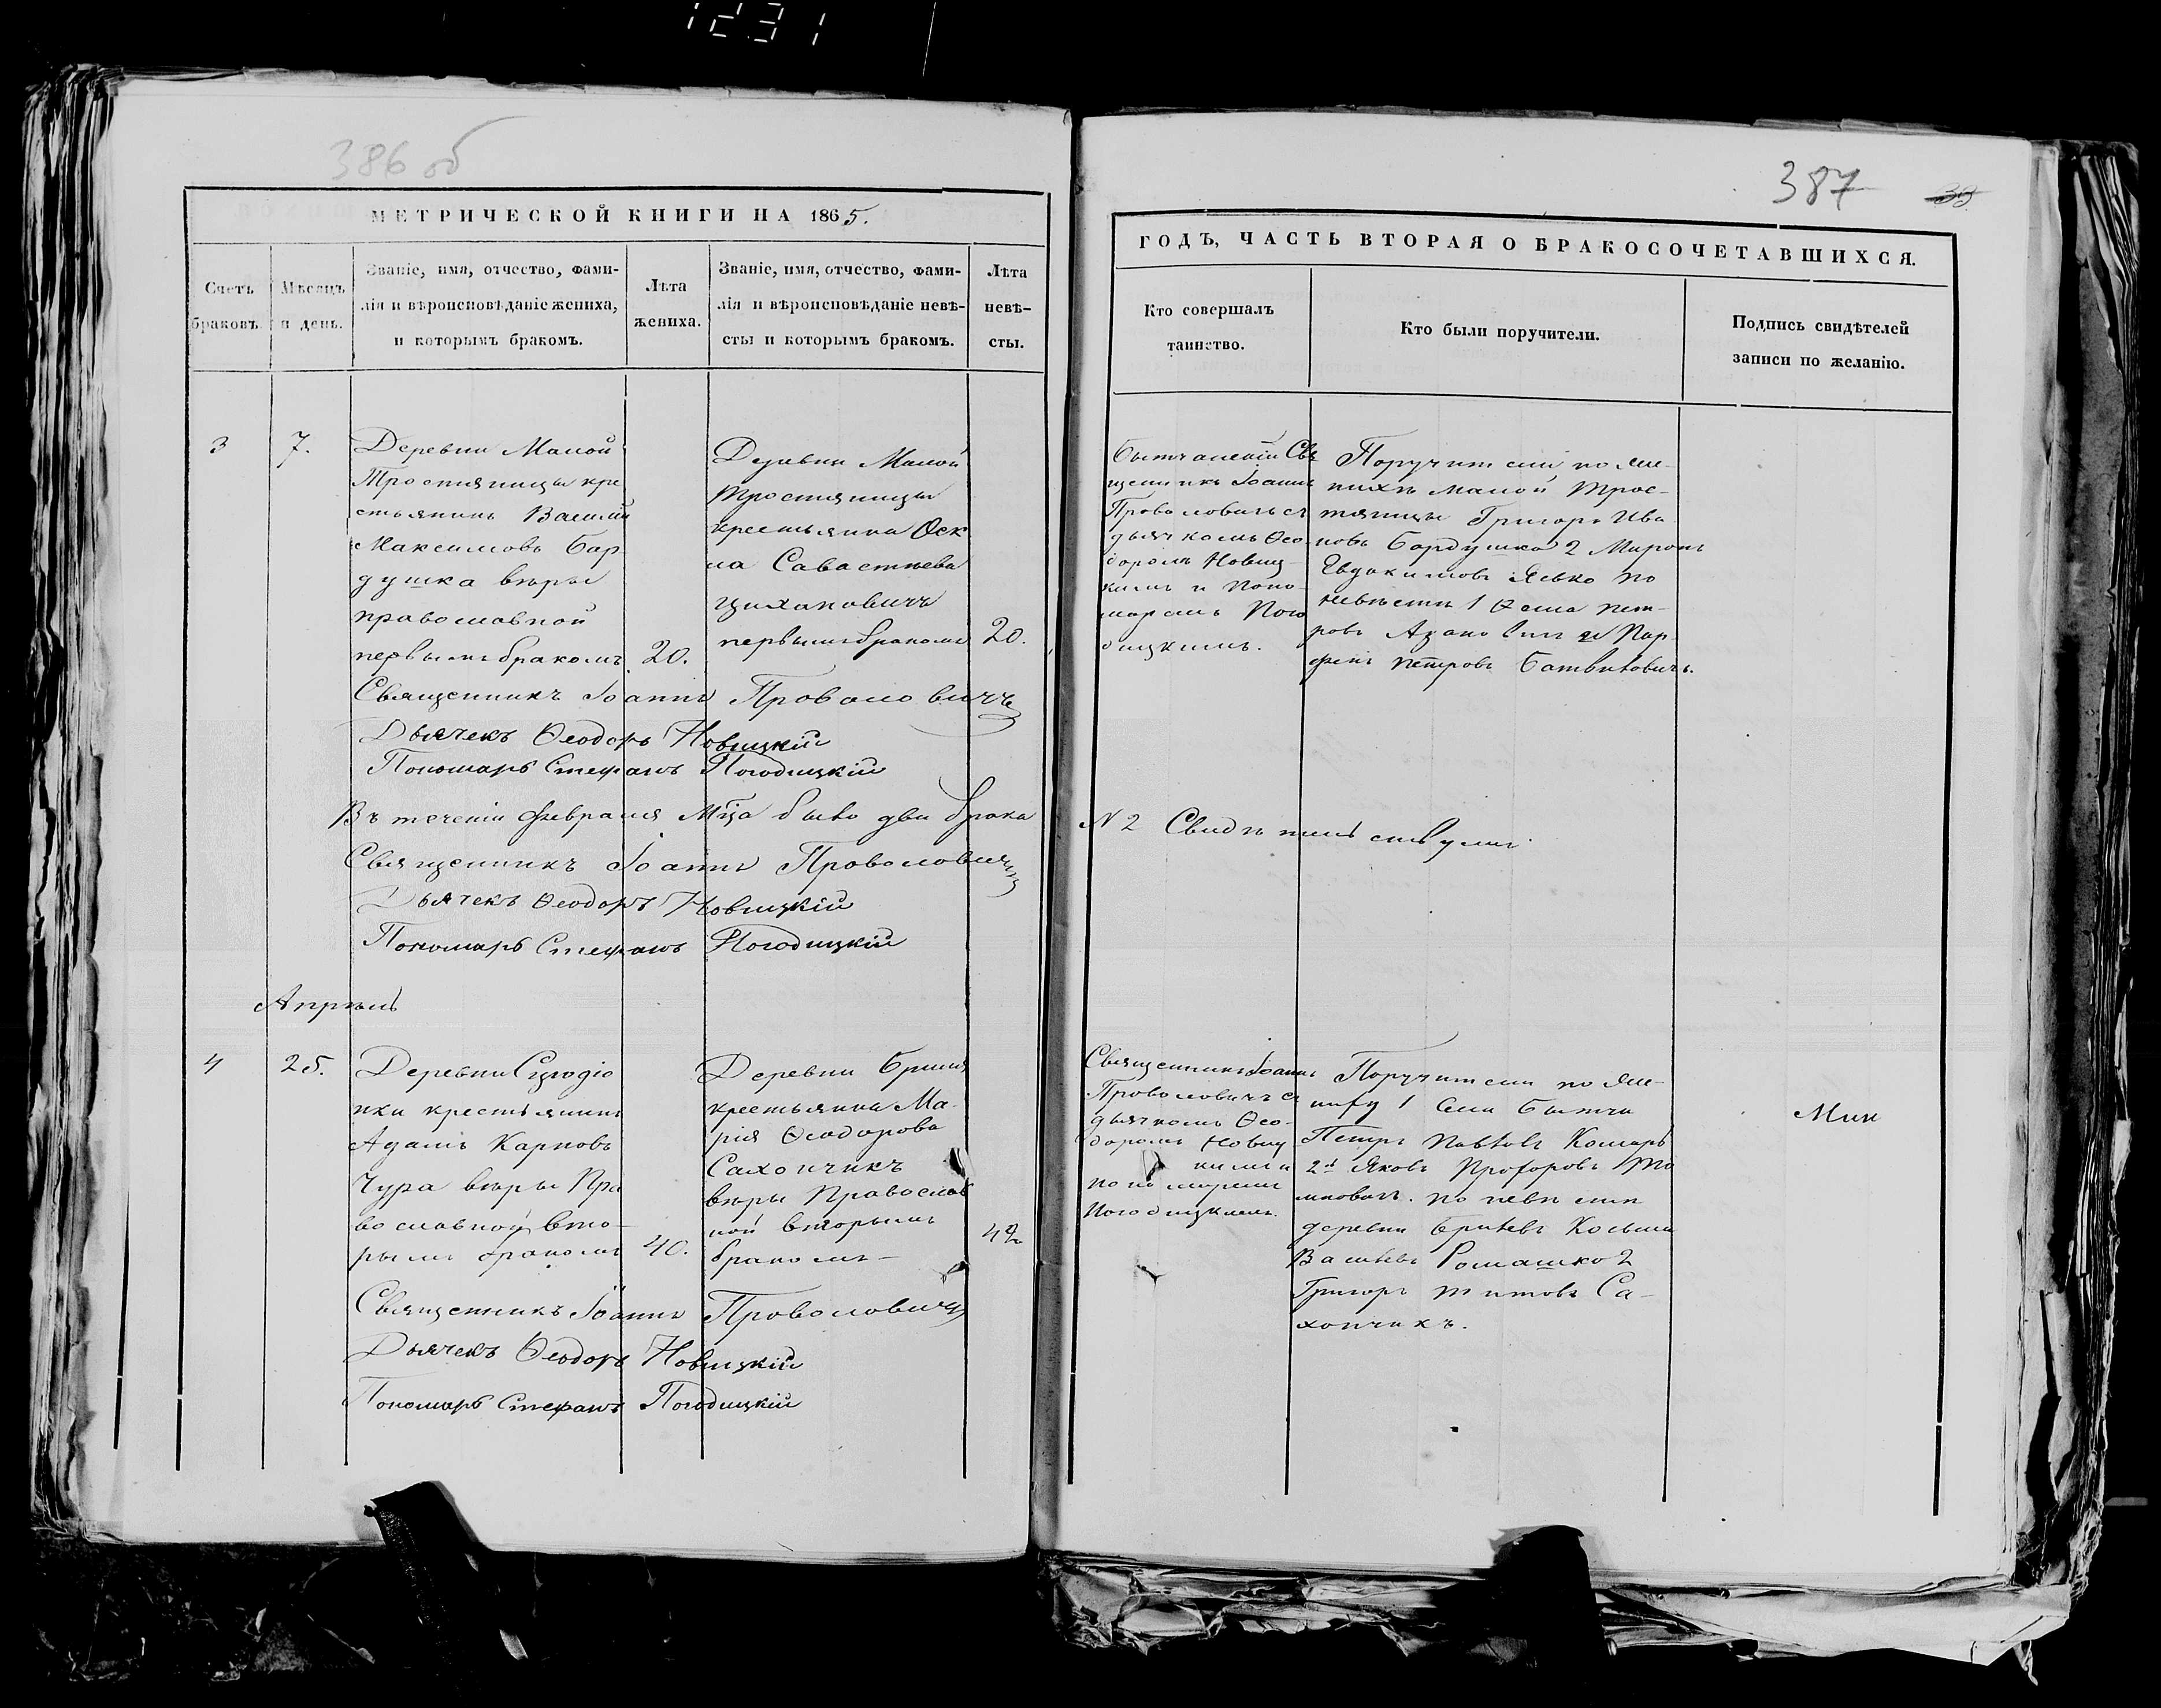 1231
386 об
МЕТРИЧЕСКОЙ КНИГИ НА 1865.
Счетъ браковъ.
Мѣсяцъ и день.
Званіе, имя, отчество, фами-
лія и вѣроисповѣданіе жениха,
и которымъ бракомъ.
Лѣта жениха.
Званіе, имя, отчество, фами-
лія и вѣроисповѣданіе невѣ-
сты и которымъ бракомъ.
Лѣта невѣ-
сты.
3
7.
Деревни Малой
Тростяницы кре
стьянинъ Василій
Максимовъ Бар
душка вѣры
православной
первымъ бракомъ
20.
Деревни Малой
Тростяницы
крестьянка Ѳек
ла Савастѣева
Цихановичъ
первымъ бракомъ
20.
Священникъ Іоаннъ Проволовичъ
Дьячекъ Ѳеодоръ Новицкій
Пономарь Стефанъ Погодицкій
Въ теченіи Февраля Мца было два брака
Священникъ Іоаннъ Проволовичъ
Дьячекъ Ѳеодоръ Новицкій
Пономарь Стефанъ Погодицкій
Апрѣль
4
25.
Деревни
нки крестьянинъ
Адамъ Карповъ
Чура вѣры Пра
вославной вто-
рымъ бракомъ
40.
Деревни
крестьянка Ма-
рія Ѳеодорова
Сахончикъ
вѣры Православ
ной вторымъ
бракомъ
42
Священникъ Іоаннъ Проволовичъ
Дьячекъ Ѳеодоръ Новицкій
Пономарь Стефанъ Погодицкій
387
ГОДЪ, ЧАСТЬ ВТОРАЯ О БРАКОСОЧЕТАВШИХСЯ.
Кто совершалъ
таинство.
Кто были поручители.
Подпись свидѣтелей
записи по желанію.
Свя
щенникъ Іоаннъ
Проволовичъ съ
дьячкомъ Ѳео-
доромъ Новиц-
кимъ и Поно-
маремъ Пого
дицкимъ.
Поручители по же-
нихѣ Малой Трос-
тяницы Григорій Ива
новъ Бардушка 2 Миронъ
Евдокимовъ по
невѣстѣ 1 Пет-
ровъ 2 Пар-
фенъ Петровъ
N 2
Священникъ Іоаннъ
Проволовичъ съ
дьячкомъ Ѳео-
доромъ Новиц
кимъ и
пономаремъ
Погодицкимъ.
Поручители по же-
ниху 1 Села Бытча
Петръ Павловъ Комаръ
2й Яковъ Прохоровъ
по невѣстѣ
деревни
Ромашко 2
Григорій Титовъ Са-
хончикъ.